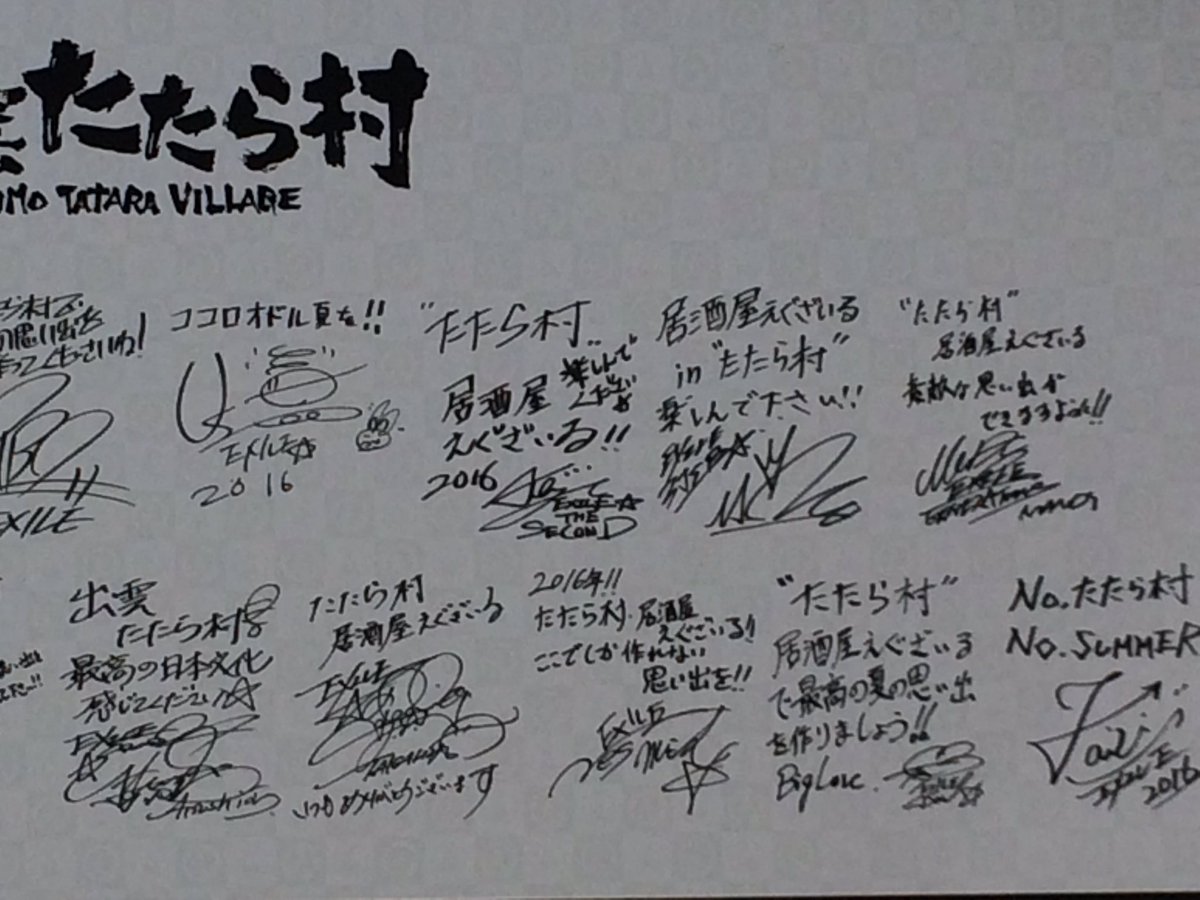 たたら村
TATARA VILLAGE
EXILE
ココロオドル夏を!!
EXILE
2016
"たたら村"
楽しんで
ください
居酒屋
えぐざいる!!
2016
EXILE
THE
SECOND
居酒屋えぐざいる
in "たたら村"
楽しんで下さい!!
"たたら村"
居酒屋えぐざいる
素敵な思い出が
できますように!!
EXILE
出雲
たたら村
最高の日本文化
感じてください
EXILE
たたら村
居酒屋えぐざいる
EXILE
いつもありがとうございます
2016年!!
たたら村、居酒屋
えぐざいる!!
ここでしか作れない
思い出を!!
EXILE
"たたら村"
居酒屋えぐざいる
で最高の夏の思い出
を作りましょう!!
Big Love.
No.たたら村
No.SUMMER
EXILE
2016